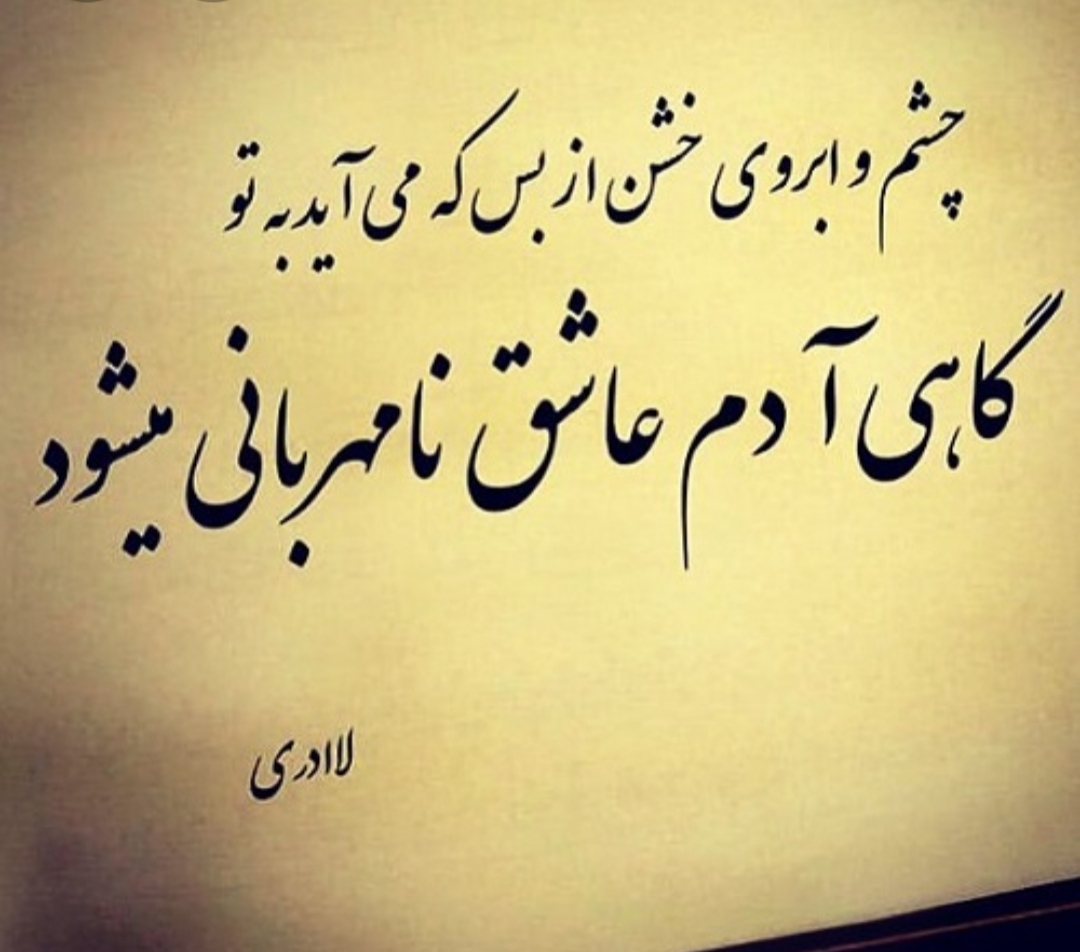 چشم و ابروی خشن از بس که می آید به تو
گاهی آدم عاشق نامهربانی میشود
لاادری